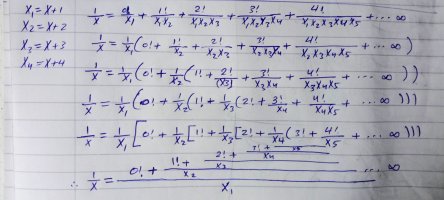 x₁ = x+1
x₂ = x+2
x₃ = x+3
x₄ = x+4
1/x = 0!/x₁ + 1!/x₁x₂ + 2!/x₁x₂x₃ + 3!/x₁x₂x₃x₄ + 4!/x₁x₂x₃x₄x₅ + ... ∞
1/x = 1/x₁ (0! + 1!/x₂ + 2!/x₂x₃ + 3!/x₂x₃x₄ + 4!/x₂x₃x₄x₅ + ... ∞)
1/x = 1/x₁ (0! + 1/x₂ (1! + 2!/(x₃) + 3!/x₃x₄ + 4!/x₃x₄x₅ + ... ∞))
1/x = 1/x₁ (0! + 1/x₂ (1! + 1/x₃ (2! + 3!/x₄ + 4!/x₄x₅ + ... ∞)))
1/x = 1/x₁ [0! + 1/x₂ [1! + 1/x₃ [2! + 1/x₄ (3! + 4!/x₅ + ... ∞)))
∴ 1/x = 0! + 1! + 2! + 3! + ... ∞
x₅
x₄
x₃
x₂
x₁